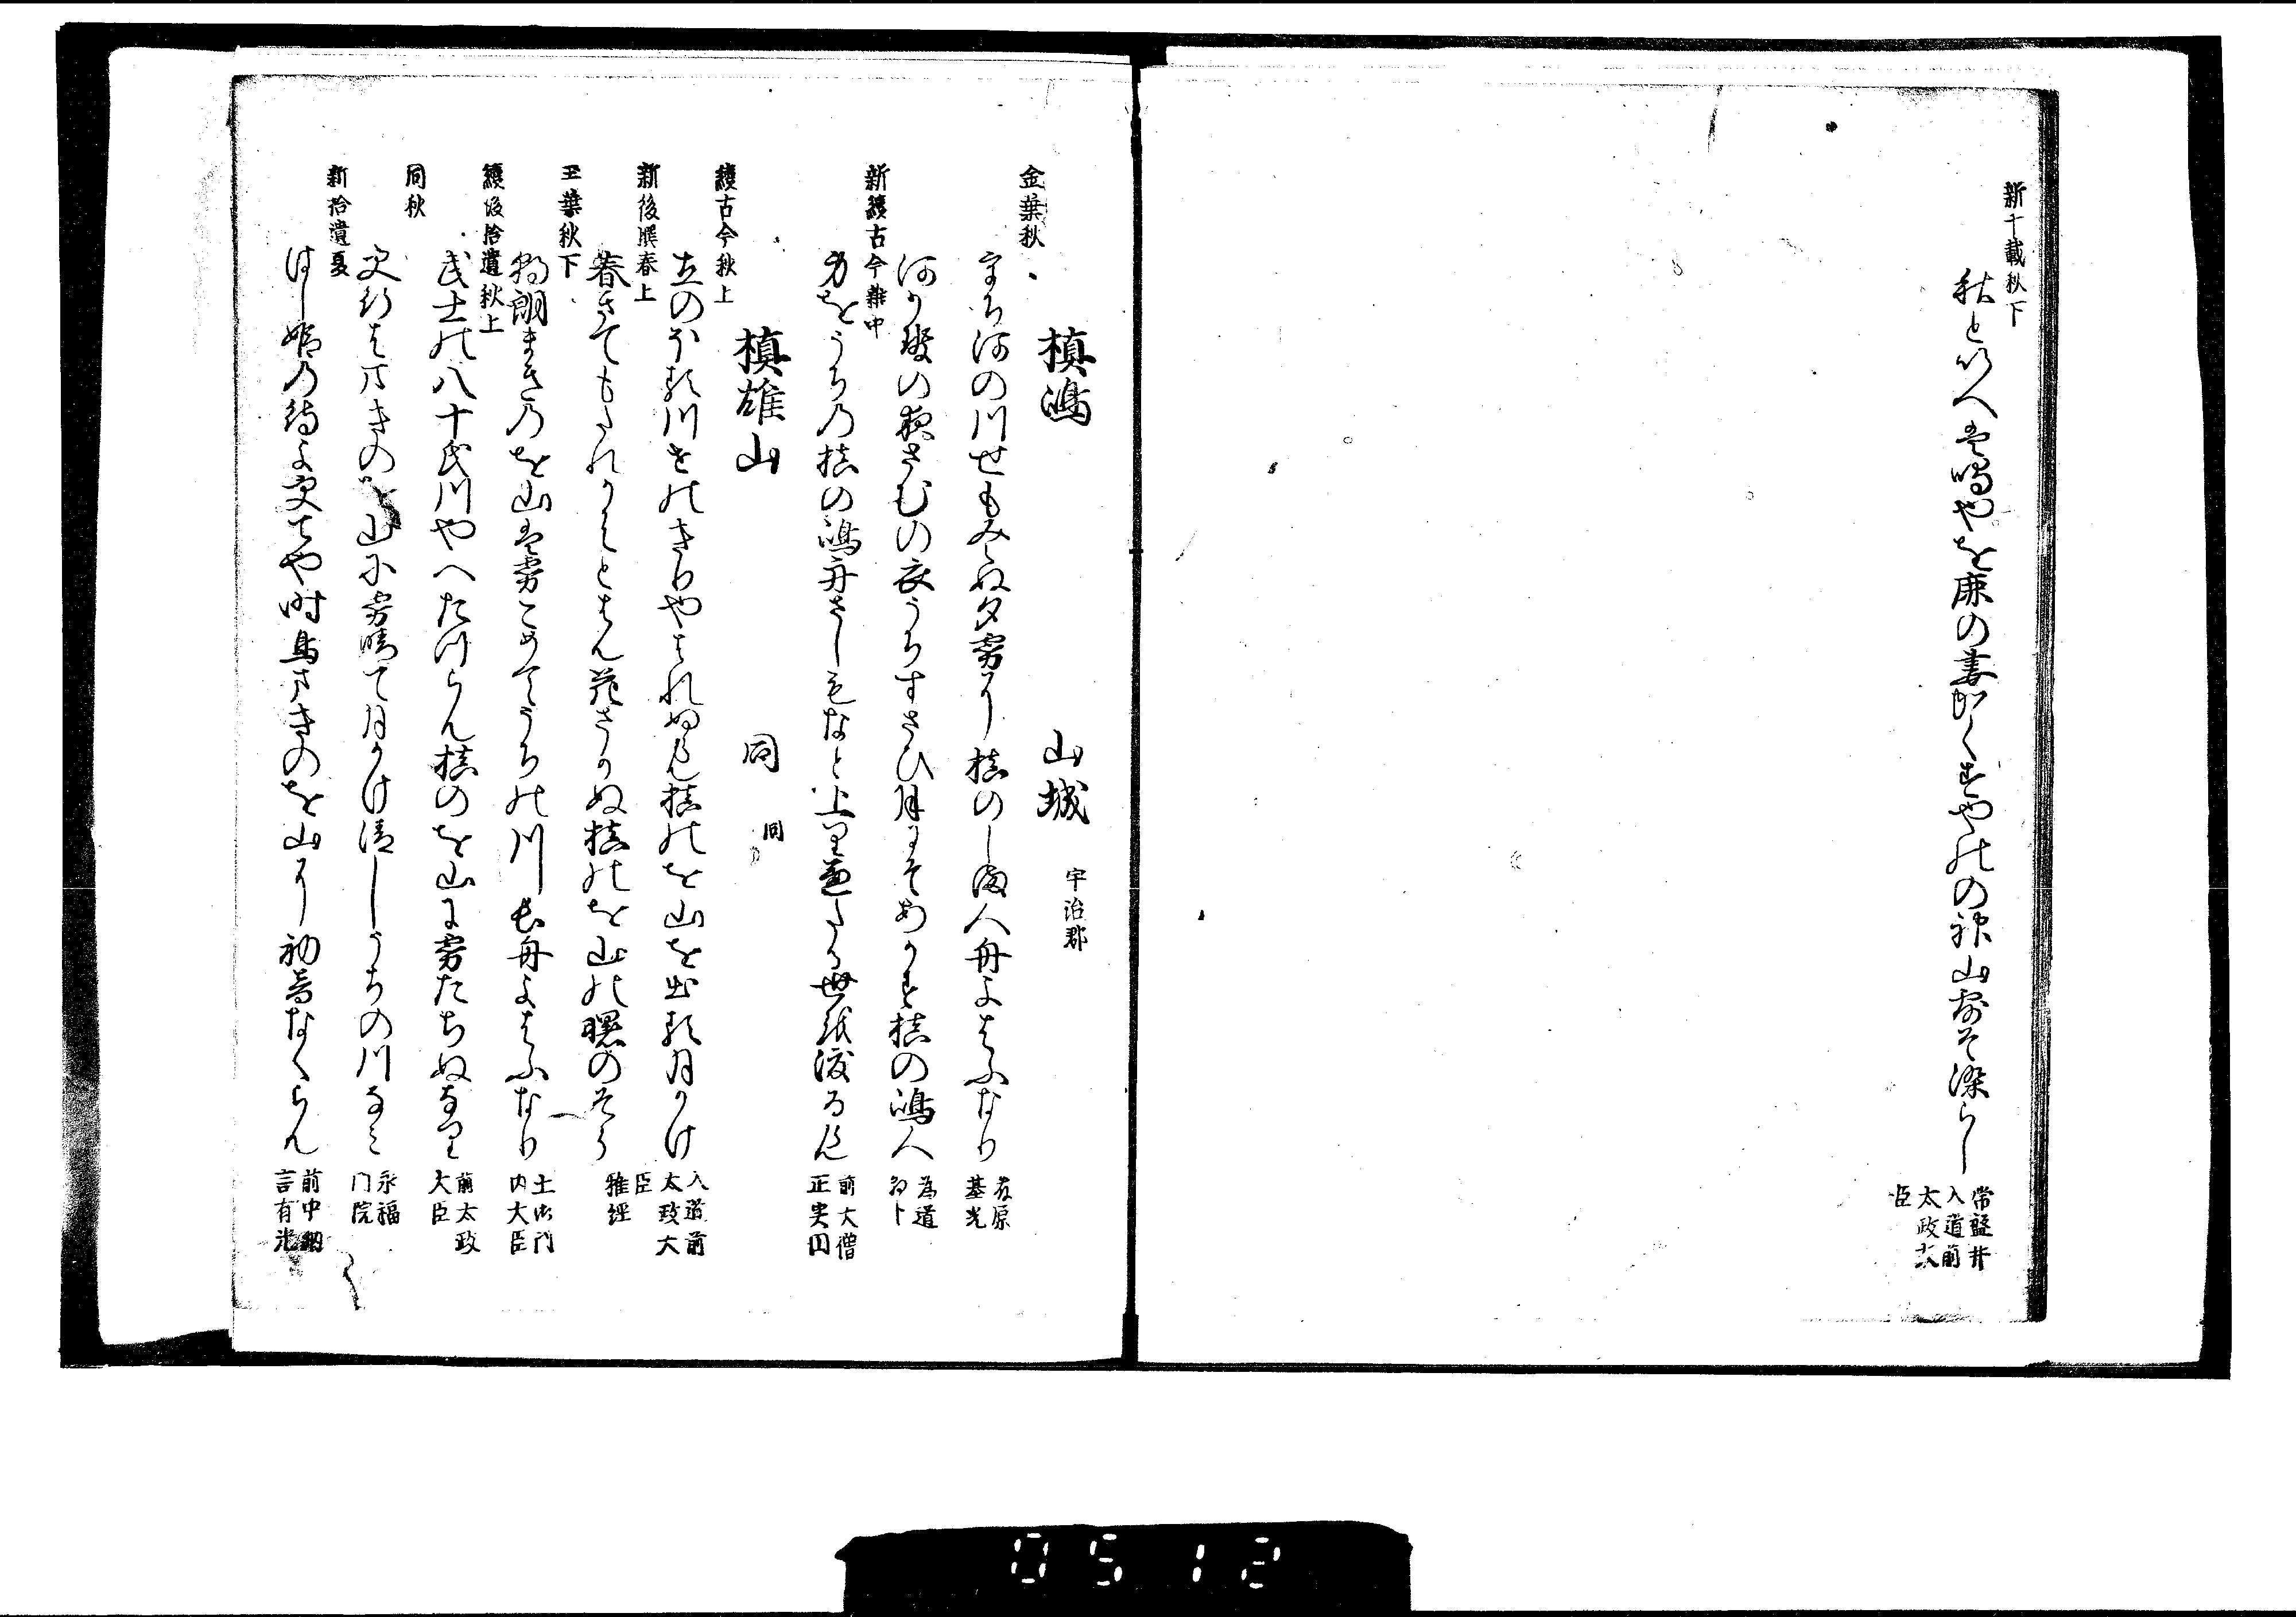 新千載秋下
秋といへは鳴やを鹿の妻かくすやのの神山露そ染らし
常盤井
入道前
太政大
臣
槙嶋
山城
宇治郡
金葉秋
うち河の川せもみえぬ夕霧に槙のしま人舟よはふなり
藤原
基光
河風の夜さむの衣うちすさひ月にそあかす槙の嶋人
為道
朝卜
新續古今雜中
身をうちの槙の嶋舟さしもなと
世
渡る
前大僧
正実円
槙雄山
同
同
續古今秋上
立のほる川せのきりやはれぬらん槙のを山を出る月かけ
入道前
太政大
臣
新後撰春上
春きても
とはん花さかぬ槙のを山の曙のそら
雅經
玉葉秋下
朝朗まきのを山は霧こめてうちの川長舟よはふなり
土御門
内大臣
續後拾遺秋上
武士の八十氏川やへたつらん槙のを山に霧たちぬなり
前太政
大臣
同秋
更行はまきのを山に霧晴て月かけ清しうちの川なみ
永福
门院
新拾遺夏
はし姫の待よ更てや時鳥まきのを山に初音なくらん
前中納
言有光
0512